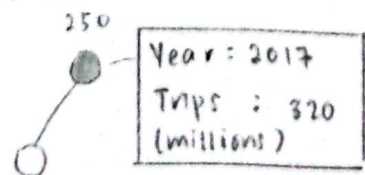 250
Year : 2017
Trips : 320
(millions)